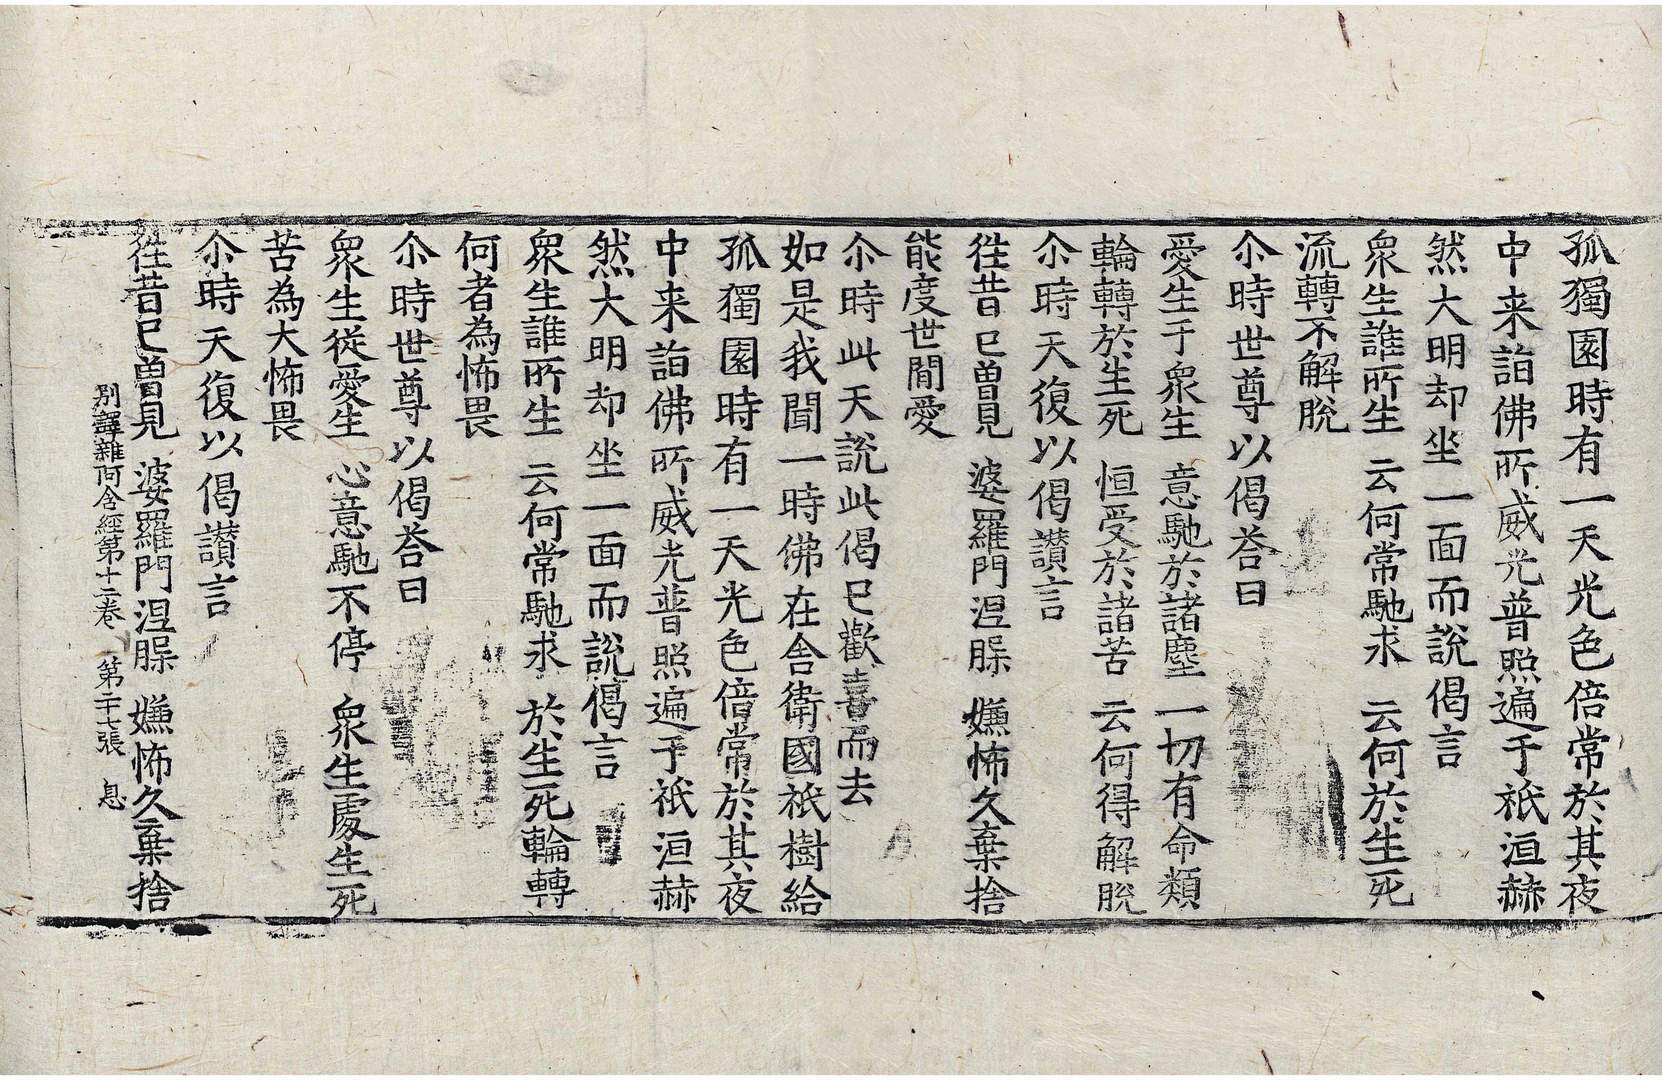 孤獨園時有一天光色倍常於其夜
中来詣佛所威光普照遍于祇洹赫
然大明却坐一面而說偈言
衆生誰所生　云何常馳求　云何於生死
流轉不解脫
尒時世尊以偈荅曰
愛生于衆生　意馳於諸塵　一切有命類
輪轉於生死　恒受於諸苦　云何得解脫
尒時天復以偈讃言
徃昔已曽見　婆羅門涅槃　嫌怖久棄捨
能度世間愛
尒時此天說此偈已歡喜而去
如是我聞一時佛在舎衛國祇樹給
孤獨園時有一天光色倍常於其夜
中来詣佛所威光普照遍于祇洹赫
然大明却坐一面而說偈言
衆生誰所生　云何常馳求　於生死輪轉
何者為怖畏
尒時世尊以偈荅曰
衆生從愛生　心意馳不停　衆生處生死
苦為大怖畏
尒時天復以偈讃言
徃昔已曽見　婆羅門涅槃　嫌怖久棄捨
別譯雜阿含經第十二卷　第二十七張　息